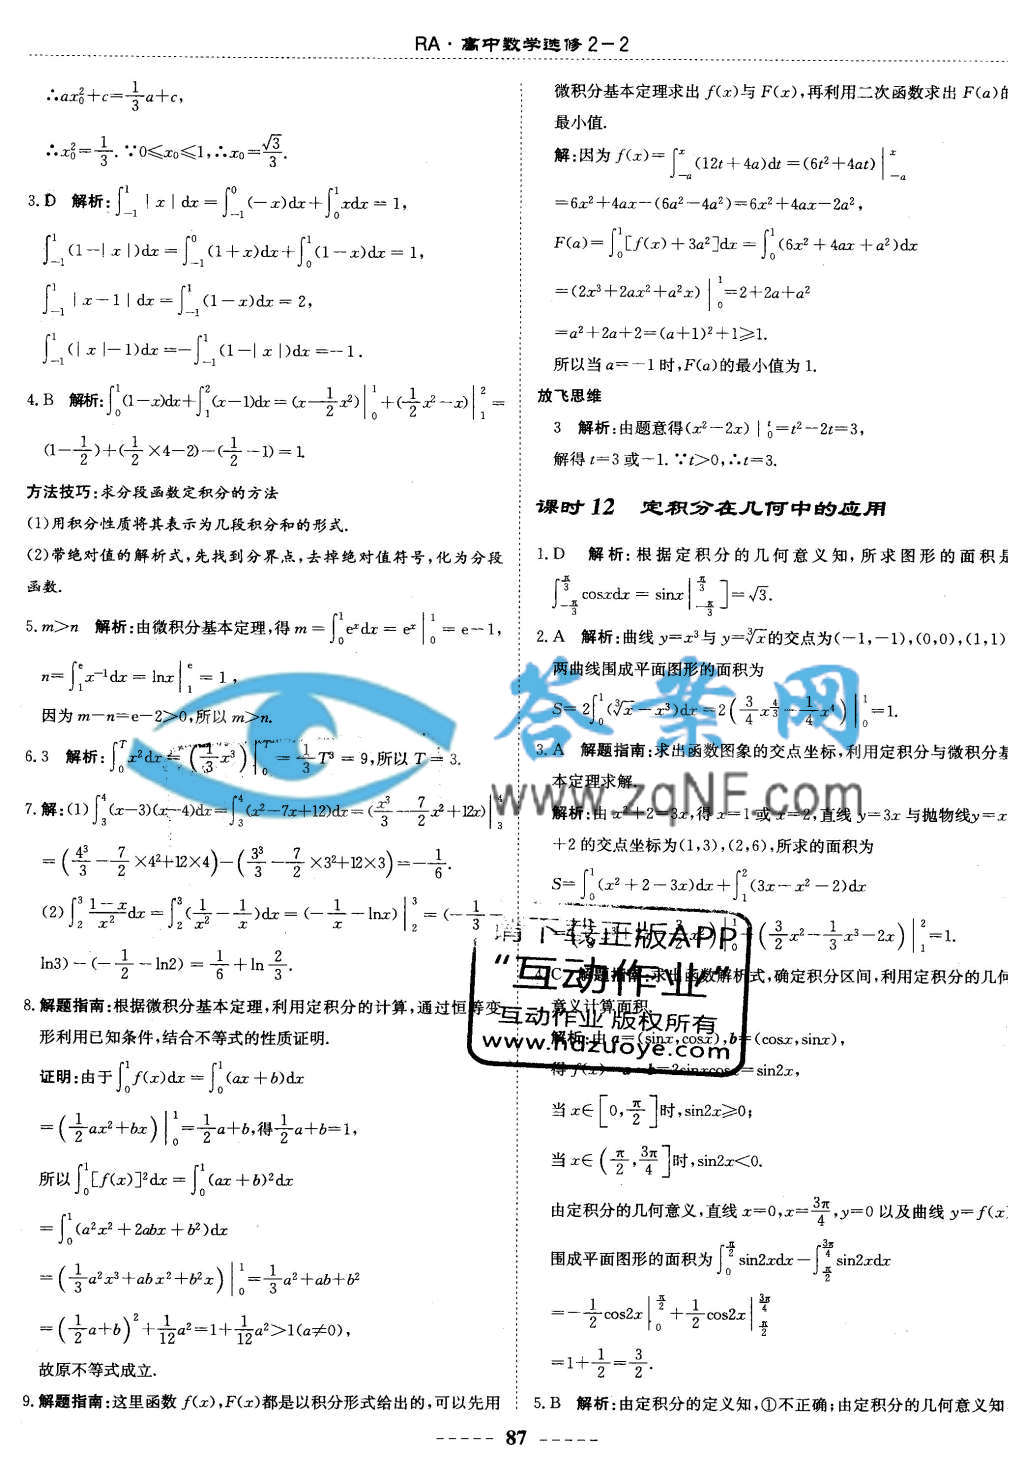 RA·高中数学选修2-2
∴ax₀²+c=1/3a+c,
∴x₀²=1/3.∵0≤x₀≤1,∴x₀=√3/3.
3.D 解析:∫₋₁¹|x|dx=∫₋₁⁰(-x)dx+∫₀¹xdx=1,
∫₋₁¹(1-|x|)dx=∫₋₁⁰(1+x)dx+∫₀¹(1-x)dx=1,
∫₋₁¹|x-1|dx=∫₋₁¹(1-x)dx=2,
∫₋₁¹(|x|-1)dx=-∫₋₁¹(1-|x|)dx=-1.
4.B 解析:∫₀¹(1-x)dx+∫₁²(x-1)dx=(x-1/2x²)|₀¹+(1/2x²-x)|₁²=
(1-1/2)+(1/2×4-2)-(1/2-1)=1.
方法技巧:求分段函数定积分的方法
(1)用积分性质将其表示为几段积分和的形式.
(2)带绝对值的解析式,先找到分界点,去掉绝对值符号,化为分段
函数.
5.m>n 解析:由微积分基本定理,得m=∫₀¹eˣdx=eˣ|₀¹=e-1,
n=∫₁ᵉx⁻¹dx=lnx|₁ᵉ=1,
因为m-n=e-2>0,所以m>n.
6.3 解析:∫₀ᵀx²dx=(1/3x³)|₀ᵀ=1/3T³=9,所以T=3.
7.解:(1)∫₃⁴(x-3)(x-4)dx=∫₃⁴(x²-7x+12)dx=(x³/3-7/2x²+12x)|₃⁴
=(4³/3-7/2×4²+12×4)-(3³/3-7/2×3²+12×3)=-1/6.
(2)∫₂³(1-x)/x²dx=∫₂³(1/x²-1/x)dx=(-1/x-lnx)|₂³=(-1/3-
ln3)-(-1/2-ln2)=1/6+ln2/3.
8.解题指南:根据微积分基本定理,利用定积分的计算,通过恒等变
形利用已知条件,结合不等式的性质证明.
证明:由于∫₀¹f(x)dx=∫₀¹(ax+b)dx
=(1/2ax²+bx)|₀¹=1/2a+b,得1/2a+b=1,
所以∫₀¹[f(x)]²dx=∫₀¹(ax+b)²dx
=∫₀¹(a²x²+2abx+b²)dx
=(1/3a²x³+abx²+b²x)|₀¹=1/3a²+ab+b²
=(1/2a+b)²+1/12a²=1+1/12a²>1(a≠0),
故原不等式成立.
9.解题指南:这里函数f(x),F(x)都是以积分形式给出的,可以先用
微积分基本定理求出f(x)与F(x),再利用二次函数求出F(a)的
最小值.
解:因为f(x)=∫₋ₐˣ(12t+4a)dt=(6t²+4at)|₋ₐˣ
=6x²+4ax-(6a²-4a²)=6x²+4ax-2a²,
F(a)=∫₀¹[f(x)+3a²]dx=∫₀¹(6x²+4ax+a²)dx
=(2x³+2ax²+a²x)|₀¹=2+2a+a²
=a²+2a+2=(a+1)²+1≥1.
所以当a=-1时,F(a)的最小值为1.
放飞思维
3 解析:由题意得(x²-2x)|₀ᵗ=t²-2t=3,
解得t=3或-1.∵t>0,∴t=3.
课时12 定积分在几何中的应用
1.D 解析:根据定积分的几何意义知,所求图形的面积是
∫_{-π/3}^{π/3}cosxdx=sinx|_{-π/3}^{π/3}]=√3.
2.A 解析:曲线y=x³与y=∛x的交点为(-1,-1),(0,0),(1,1)
两曲线围成平面图形的面积为
S=2∫₀¹(∛x-x³)dx=2(3/4x^{4/3}-1/4x⁴)|₀¹=1.
3.A 解题指南:求出函数图象的交点坐标,利用定积分与微积分基
本定理求解.
解析:由x²+2=3x,得x=1或x=2,直线y=3x与抛物线y=x
+2的交点坐标为(1,3),(2,6),所求的面积为
S=∫₀¹(x²+2-3x)dx+∫₁²(3x-x²-2)dx
|₀¹+(3/2x²-1/3x³-2x)|₁²=1.
4.C 解题指南:求出函数解析式,确定积分区间,利用定积分的几何
意义计算面积.
解析:由a=(sinx,cosx),b=(cosx,sinx),
得f(x)=a·b=2sinxcosx=sin2x,
当x∈[0,π/2]时,sin2x≥0;
当x∈(π/2,3π/4]时,sin2x<0.
由定积分的几何意义,直线x=0,x=3π/4,y=0以及曲线y=f(x)
围成平面图形的面积为∫_0^{π/2}sin2xdx-∫_{π/2}^{3π/4}sin2xdx
=-1/2cos2x|_0^{π/2}+1/2cos2x|_{π/2}^{3π/4}
=1+1/2=3/2.
5.B 解析:由定积分的定义知,①不正确;由定积分的几何意义知
87
答案网
www.zqNF.com
请下载正版APP
“互动作业”
互动作业 版权所有
www.hdzuoye.com